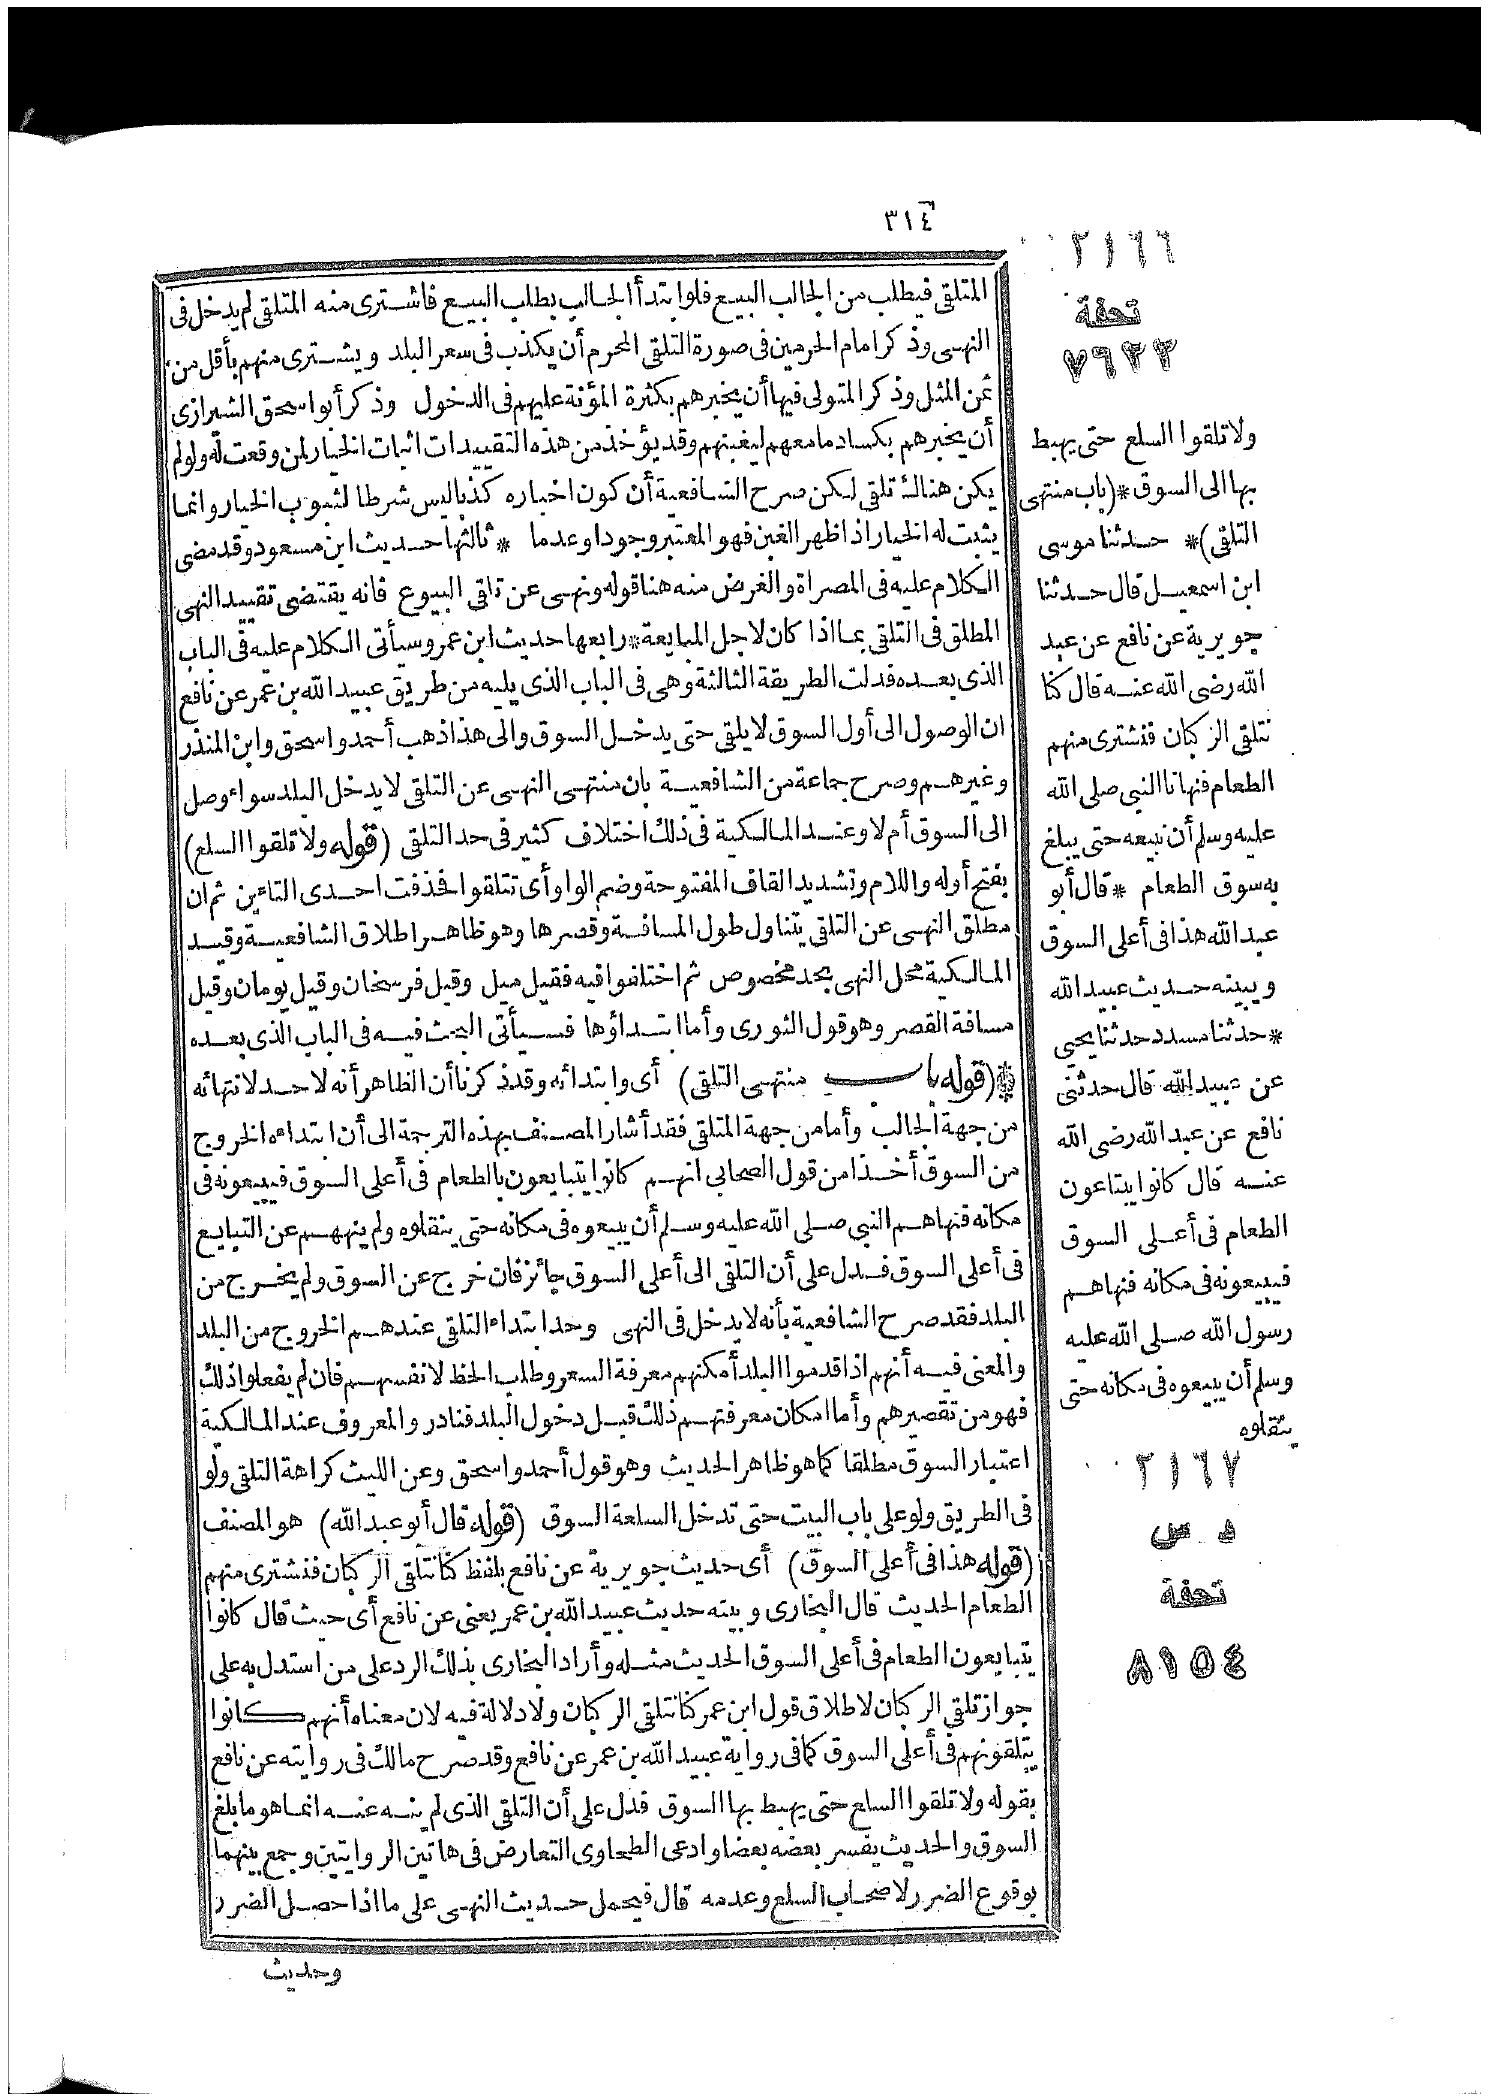 ٣١٤
المتلقي فيطلب من الجالب البيع فلو ابتدأ الجالب بطلب البيع فاشترى منه المتلقي لم يدخل في
النهى وذكر امام الحرمين في صورة التلقي المحرم أن يكذب في سعر البلد ويشترى منهم بأقل من
ثمن المثل وذكر المتولى فيها أن يخبرهم بكثرة المؤنة عليهم في الدخول وذكر أبو اسحق الشيرازى
أن يخبرهم بكساد ما معهم ليغبنهم وقد يؤخذ من هذه التقييدات اثبات الخيار لمن وقعت له ولو لم
يكن هناك تلقي لكن صرح الشافعية أن كون اخباره كذبا ليس شرطا لثبوت الخيار وانما
يثبت له الخيار اذا ظهر الغبن فهو المعتبر وجودا وعدما * ثالثها حديث ابن مسعود وقد مضى
الكلام عليه في المصراة والغرض منه هنا قوله ونهى عن تلقي البيوع فانه يقتضى تقييد النهى
المطلق في التلقي بما اذا كان لاجل المبايعة * رابعها حديث ابن عمر وسيأتى الكلام عليه في الباب
الذي بعده فدلت الطريقة الثالثة وهى في الباب الذى يليه من طريق عبيد الله بن عمر عن نافع
ان الوصول الى أول السوق لا يلقى حتى يدخل السوق والى هذا ذهب أحمد واسحق وابن المنذر
وغيرهم وصرح جماعة من الشافعية بان منتهى النهى عن التلقي لا يدخل البلد سواء وصل
الى السوق أم لا وعند المالكية في ذلك اختلاف كثير في حد التلقي (قوله ولا تلقوا السلع)
بفتح أوله واللام وتشديد القاف المفتوحة وضم الواو أى تتلقوا فحذفت احدى التاءين ثم ان
مطلق النهى عن التلقي يتناول طول المسافة وقصرها وهو ظاهر اطلاق الشافعية وقيد
المالكية محل النهى بحد مخصوص ثم اختلفوا فيه فقيل ميل وقيل فرسخان وقيل يومان وقيل
مسافة القصر وهو قول الثورى وأما ابتداؤها فسيأتى البحث فيه في الباب الذى بعده
*(قوله باب منتهى التلقي) أى وابتدائه وقد ذكرنا أن الظاهر أنه لا حد لانتهائه
من جهة الجالب وأما من جهة المتلقي فقد أشار المصنف بهذه الترجمة الى أن ابتداءه الخروج
من السوق أخذا من قول الصحابى انهم كانوا يتبايعون بالطعام في أعلى السوق فيبيعونه في
مكانه فنهاهم النبي صلى الله عليه وسلم أن يبيعوه في مكانه حتى ينقلوه ولم ينههم عن التبايع
في أعلى السوق فدل على أن التلقي الى أعلى السوق جائز فان خرج عن السوق ولم يخرج من
البلد فقد صرح الشافعية بأنه لا يدخل في النهى وحد ابتداء التلقي عندهم الخروج من البلد
والمعنى فيه أنهم اذا قدموا البلد أمكنهم معرفة السعر وطلب الحظ لانفسهم فان لم يفعلوا ذلك
فهو من تقصيرهم وأما امكان معرفتهم ذلك قبل دخول البلد فنادر والمعروف عند المالكية
اعتبار السوق مطلقا كما هو ظاهر الحديث وهو قول أحمد واسحق وعن الليث كراهة التلقي ولو
في الطريق ولو على باب البيت حتى تدخل السلعة السوق (قوله قال أبو عبد الله) هو المصنف
(قوله هذا في أعلى السوق) أى حديث جويرية عن نافع بلفظ كنا نتلقى الركبان فنشترى منهم
الطعام الحديث قال البخارى وبينه حديث عبيد الله بن عمر يعنى عن نافع أى حيث قال كانوا
يتبايعون الطعام في أعلى السوق الحديث مثله وأراد البخارى بذلك الرد على من استدل به على
جواز تلقي الركبان لاطلاق قول ابن عمر كنا نتلقى الركبان ولا دلالة فيه لان معناه أنهم كانوا
يتلقونهم في أعلى السوق كما في رواية عبيد الله بن عمر عن نافع وقد صرح مالك في روايته عن نافع
بقوله ولا تلقوا السلع حتى يهبط بها السوق فدل على أن التلقي الذى لم ينه عنه انما هو ما بلغ
السوق والحديث يفسر بعضه بعضا وادعى الطحاوى التعارض في هاتين الروايتين وجمع بينهما
بوقوع الضرر لاصحاب السلع وعدمه قال فيحمل حديث النهى على ما اذا حصل الضرر
وحديث
٢١٦٦
تحفة
٧٦٢٢
ولا تلقوا السلع حتى يهبط
بها الى السوق *(باب منتهى
التلقي)* حدثنا موسى
ابن اسمعيل قال حدثنا
جويرية عن نافع عن عبد
الله رضى الله عنه قال كنا
نتلقى الركبان فنشترى منهم
الطعام فنهانا النبي صلى الله
عليه وسلم أن نبيعه حتى يبلغ
به سوق الطعام * قال أبو
عبد الله هذا في أعلى السوق
ويبينه حديث عبيد الله
* حدثنا مسدد حدثنا يحيى
عن عبيد الله قال حدثنى
نافع عن عبد الله رضى الله
عنه قال كانوا يبتاعون
الطعام في أعلى السوق
فيبيعونه في مكانه فنهاهم
رسول الله صلى الله عليه
وسلم أن يبيعوه في مكانه حتى
ينقلوه
٢١٦٧
د س
تحفة
٨١٥٤